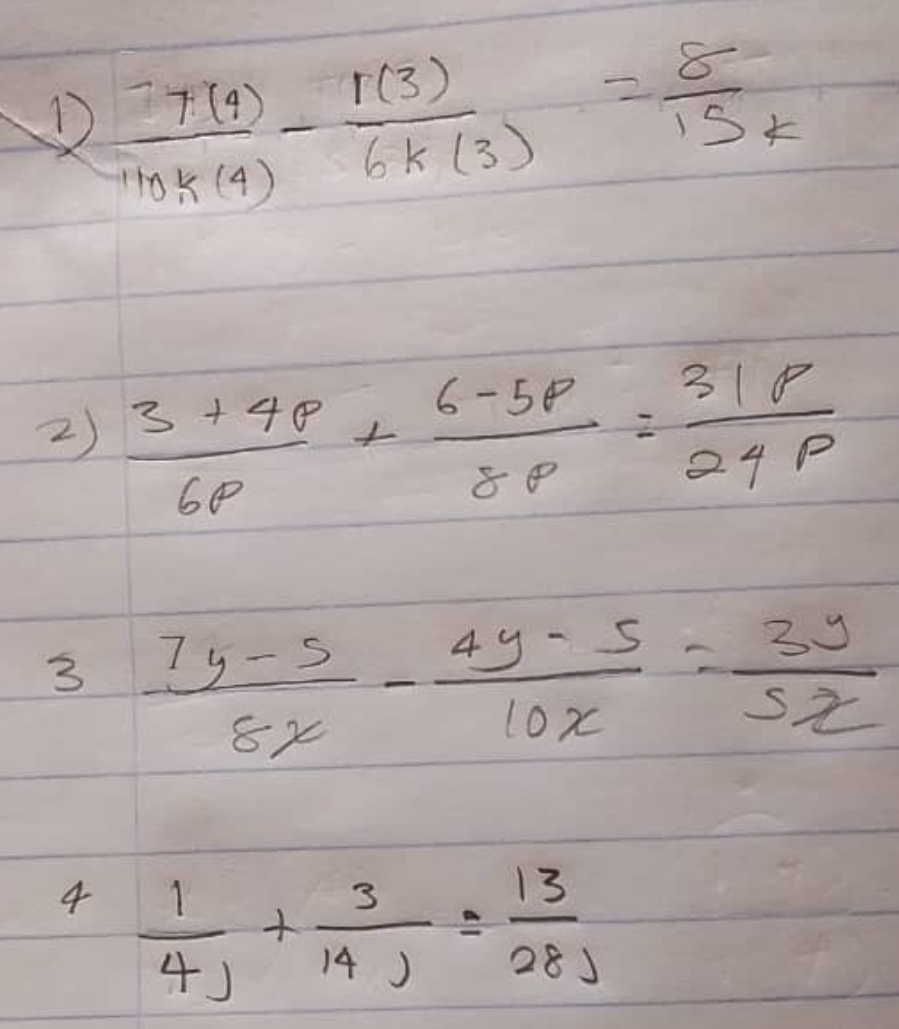 1) 7(4)/10k(4) - 1(3)/6k(3) = 8/15k
2) 3+4p/6p + 6-5p/8p = 31p/24p
3 7y-5/8x - 4y-5/10x = 3y/5x
4 1/4j + 3/14j = 13/28j